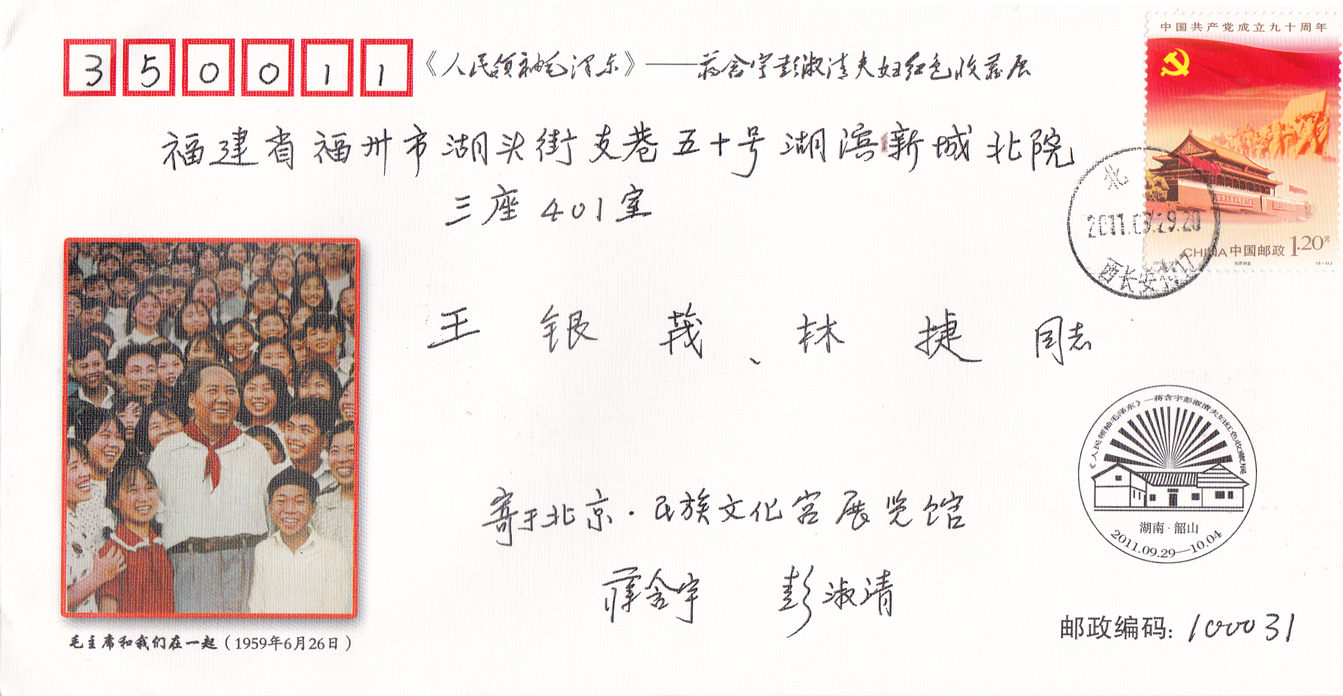 350011
《人民领袖毛泽东》——蒋含宇彭淑清夫妇红色收藏展
中国共产党成立九十周年
福建省福州市湖头街支巷五十号湖滨新城北院
三座401室
北
2011.09.29.20
西长安街
CHINA中国邮政 1.20元
王银茂、林捷 同志
《人民领袖毛泽东》—蒋含宇彭淑清夫妇红色收藏展
湖南·韶山
2011.09.29—10.04
寄于北京·民族文化宫展览馆
蒋含宇 彭淑清
毛主席和我们在一起(1959年6月26日)
邮政编码:100031